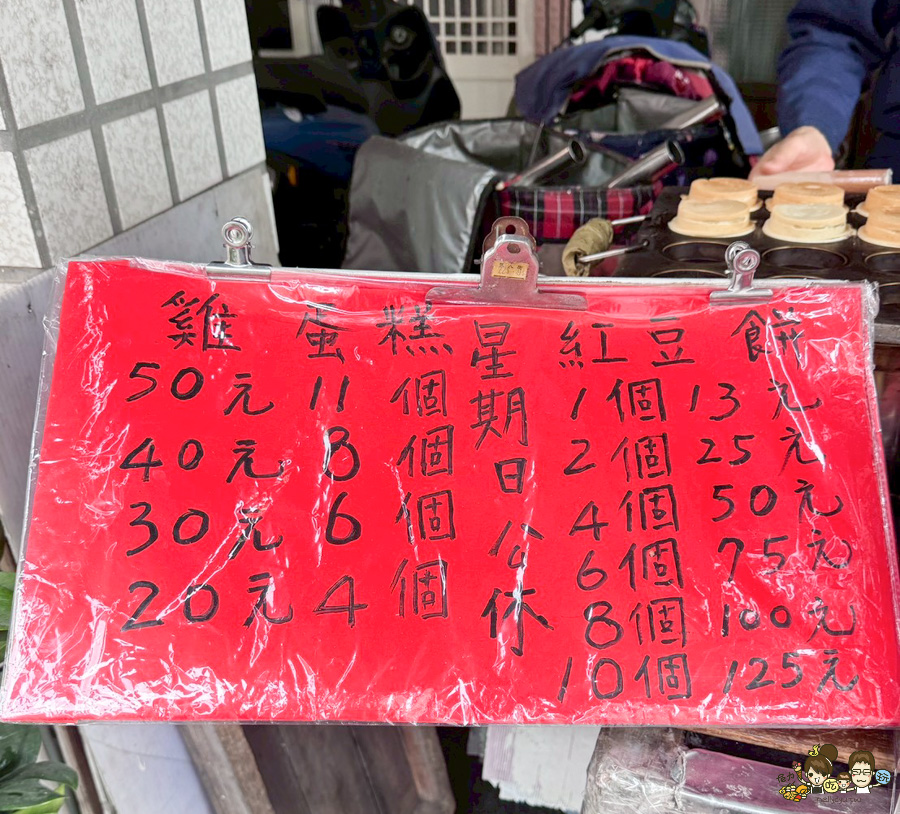 雞蛋糕
50元 11個
40元 8個
30元 6個
20元 4個
星期日公休
紅豆餅
1個 13元
2個 25元
4個 50元
6個 75元
8個 100元
10個 125元